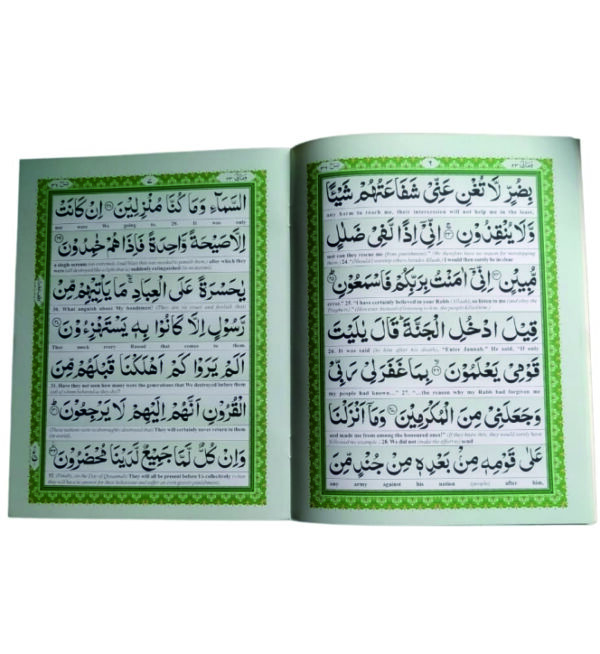 بِضُرٍّ لَّا تُغْنِ عَنِّىْ شَفَاعَتُهُمْ شَيْئًا
any harm to reach me, their intercession will not help me in the least,
وَّلَا يُنْقِذُوْنِ ۚ اِنِّىْٓ اِذًا لَّفِىْ ضَلٰلٍ
nor can they rescue me (from punishment)." 24. I would then surely be in clear
مُّبِيْنٍ اِنِّىْٓ اٰمَنْتُ بِرَبِّكُمْ فَاسْمَعُوْنِ
error." 25. "I have certainly believed in your Rabb so listen to me
قِيْلَ ادْخُلِ الْجَنَّةَ قَالَ يٰلَيْتَ
26. It was said "Enter Jannah." He said, "If only
قَوْمِىْ يَعْلَمُوْنَ بِمَا غَفَرَ لِىْ رَبِّىْ
my people had known..." 27. "...the reason why my Rabb had forgiven me
وَجَعَلَنِىْ مِنَ الْمُكْرَمِيْنَ وَمَآ اَنْزَلْنَا
and made me from among the honoured ones!" 28. We did not send
عَلٰى قَوْمِهٖ مِنْۢ بَعْدِهٖ مِنْ جُنْدٍ مِّنَ
any army against his nation (people) after him,
السَّمَآءِ وَمَا كُنَّا مُنْزِلِيْنَ اِنْ كَانَتْ
nor were We going to. 29. It was only
اِلَّا صَيْحَةً وَّاحِدَةً فَاِذَا هُمْ خٰمِدُوْنَ
a single scream after which they
were suddenly extinguished
يٰحَسْرَةً عَلَى الْعِبَادِ ۚ مَا يَاْتِيْهِمْ مِّنْ
30. What anguish about My bondsmen!
رَّسُوْلٍ اِلَّا كَانُوْا بِهٖ يَسْتَهْزِءُوْنَ
They mock every Rasool that comes to them.
اَلَمْ يَرَوْا كَمْ اَهْلَكْنَا قَبْلَهُمْ مِّنَ
31. Have they not seen how many were the generations that We destroyed before them
الْقُرُوْنِ اَنَّهُمْ اِلَيْهِمْ لَا يَرْجِعُوْنَ
They will certainly never return to them
وَاِنْ كُلٌّ لَّمَّا جَمِيْعٌ لَّدَيْنَا مُحْضَرُوْنَ
32. They will all be present before Us collectively